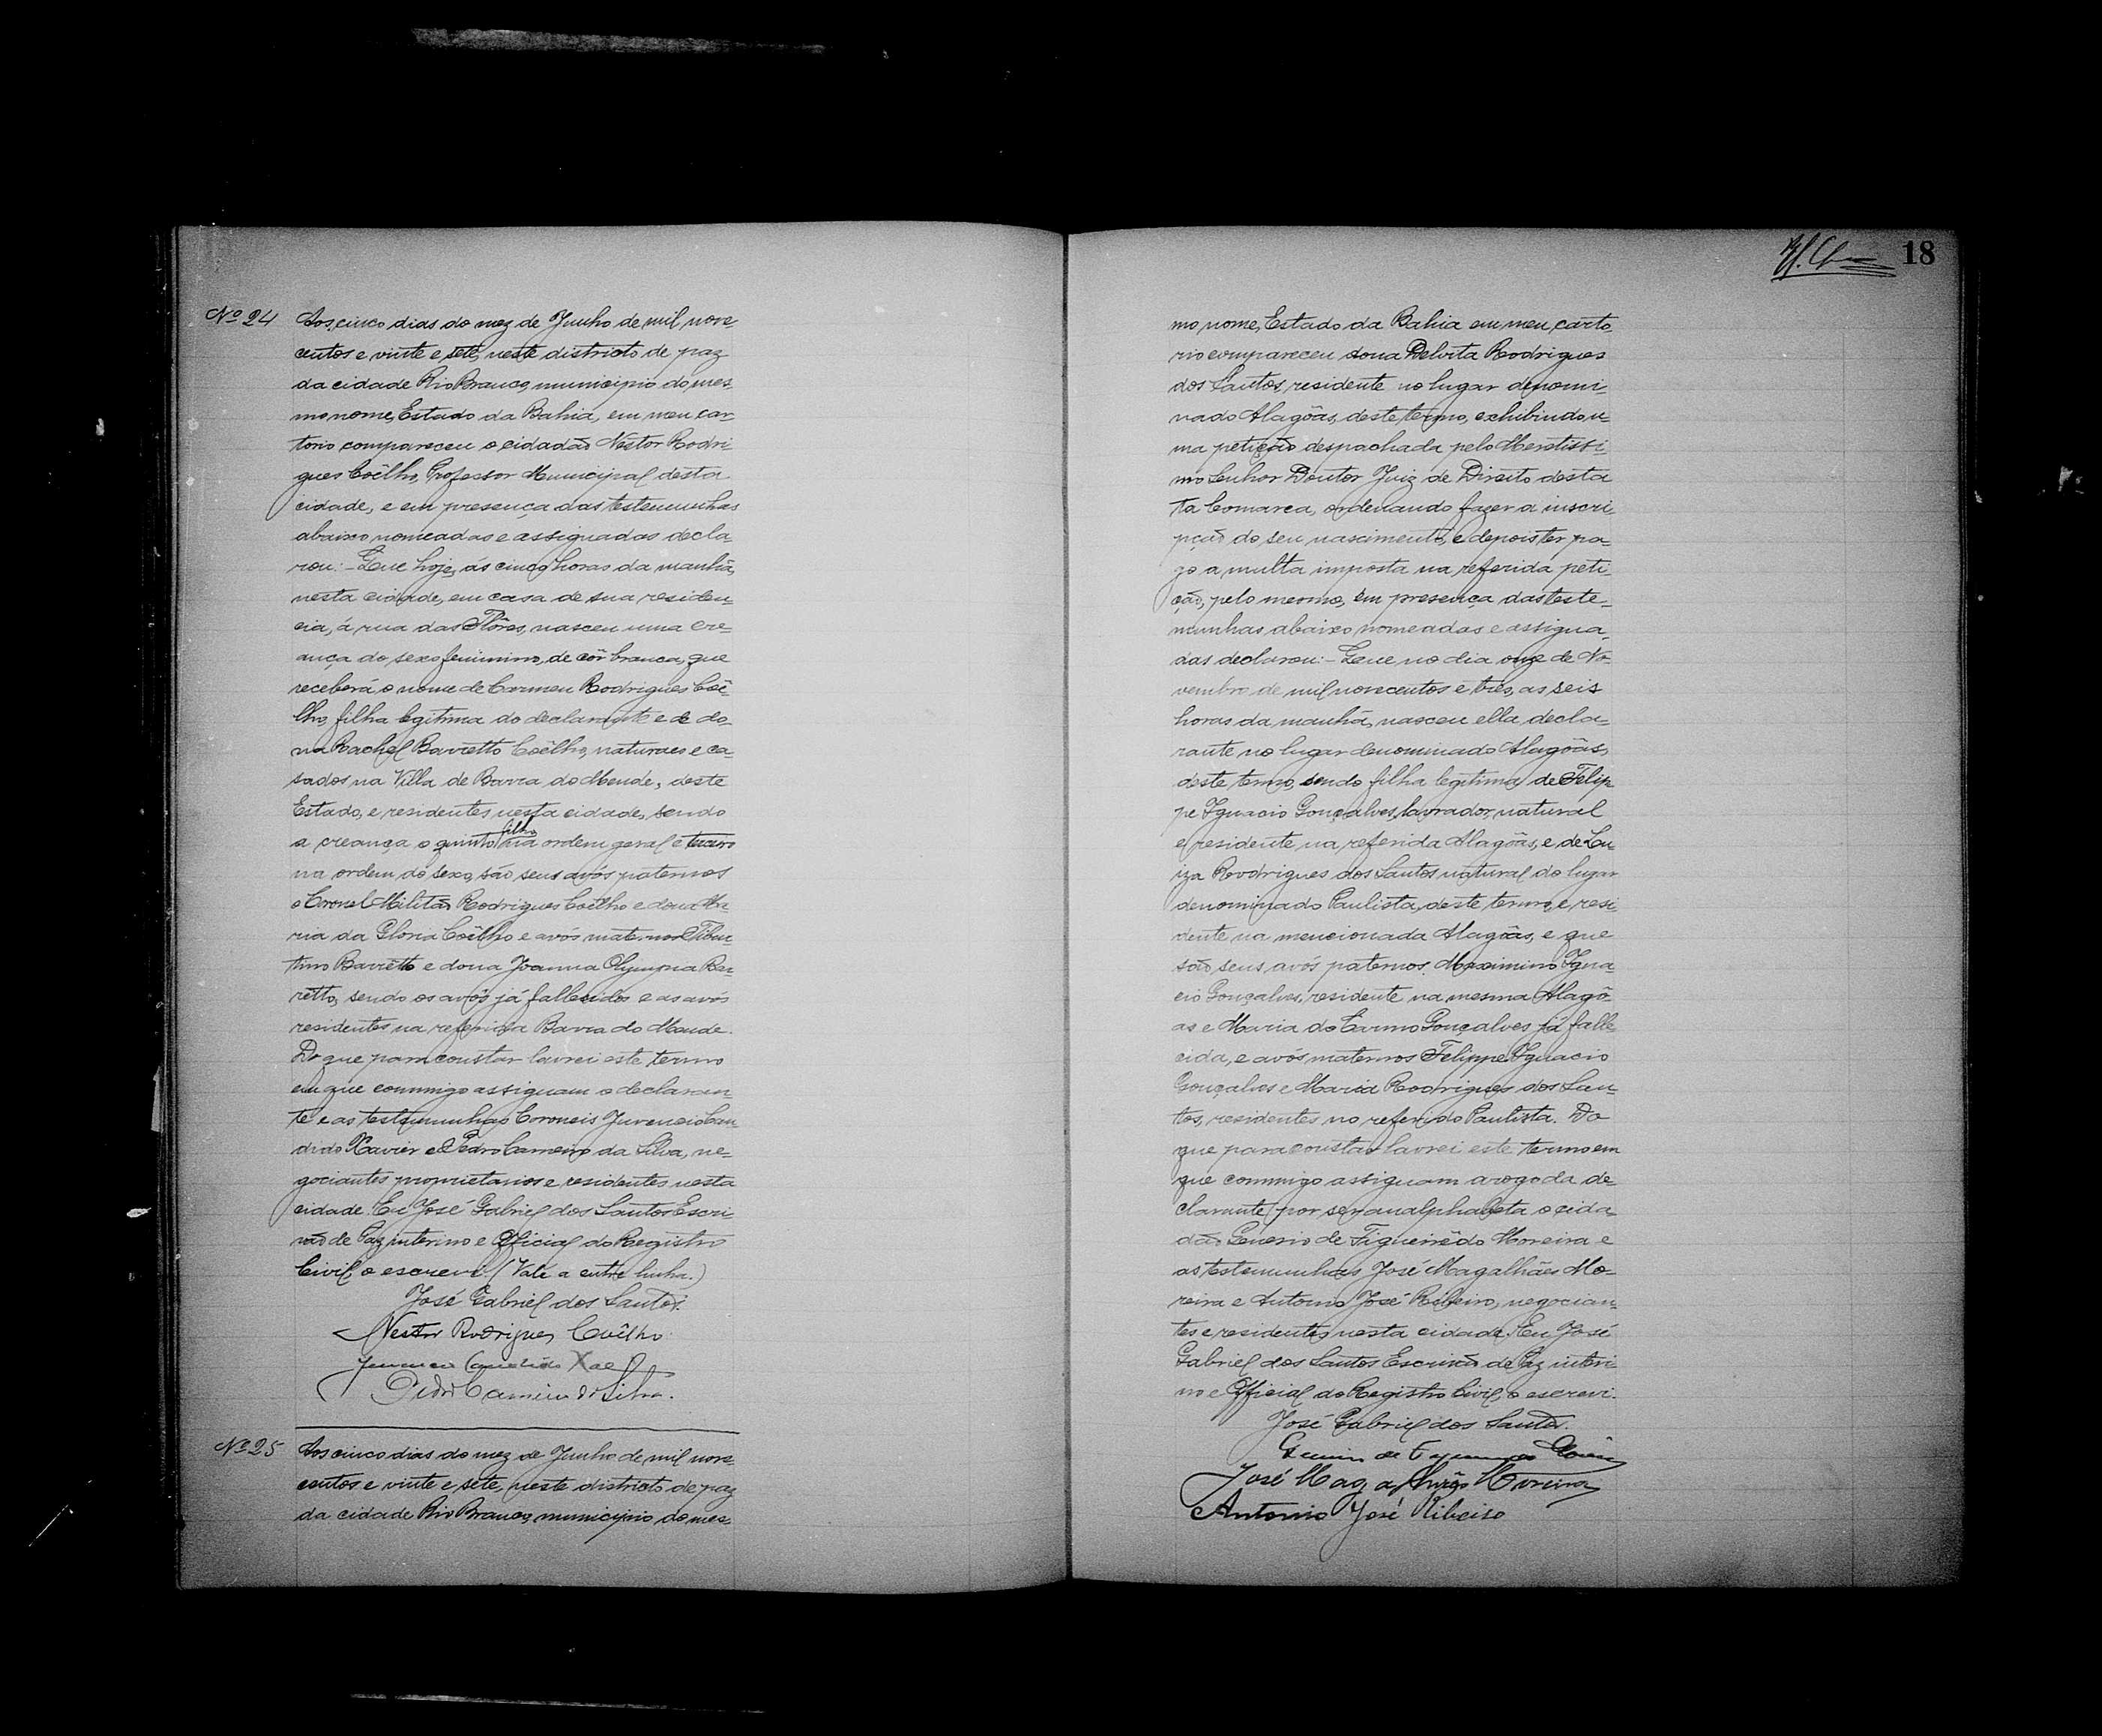 Nº 24
Aos cinco dias do mez de Junho de mil nove-
centos e vinte e sete, neste districto de paz
da cidade Rio Branco, municipio do mes-
mo nome, Estado da Bahia, em meu car-
torio compareceu o cidadão Nestor Rodri-
gues Coêlho, Professor Municipal desta
cidade, e em presença das testemunhas
abaixo nomeadas e assignadas decla-
rou:- Que hoje, ás cinco horas da manhã,
nesta cidade, em casa de sua residen-
cia, á rua das Flôres, nasceu uma cre-
ança do sexo feminino, de côr branca, que
receberá o nome de Carmen Rodrigues Coê-
lho, filha legitima do declarante e de do-
na Rachel Barretto Coêlho, naturaes e ca-
sados na Villa de Barra do Mende, deste
Estado, e residentes nesta cidade, sendo
a creança o quinto filho na ordem geral e terceiro
na ordem do sexo, são seus avós paternos
o Coronel Militão Rodrigues Coêlho e dona Ma-
ria da Gloria Coêlho e avós maternos Tibur-
tino Barretto e dona Joanna Olympia Bar-
retto, sendo os avôs já fallecidos e as avós
residentes na referida Barra do Mende.
Do que para constar lavrei este termo
em que commigo assignam o declaran-
te e as testemunhas Coroneis Juvencio Can-
dido Xavier e Pedro Carneiro da Silva, ne-
gociantes proprietarios e residentes nesta
cidade. Eu José Gabriel dos Santos Escri-
vão de Paz interino e Official do Registro
Civil, o escrevi. (Vale a entre linha.)
José Gabriel dos Santos.
Nestor Rodrigues Coêlho
Juvencio Candido Xae
Pedro Carneiro da Silva.
Nº 25
Aos cinco dias do mez de Junho de mil nove-
centos e vinte e sete, neste districto de paz
da cidade Rio Branco, municipio do mes-
18
mo nome, Estado da Bahia em meu carto-
rio compareceu dona Delvita Rodrigues
dos Santos, residente no lugar denomi-
nado Alagôas, deste termo, exhibindo u-
ma petição despachada pelo Meritissi-
mo Senhor Doutor Juiz de Direito desta
ta Comarca, ordenando fazer a inscri-
pção do seu nascimento, e depois ter pa-
go a multa imposta na referida peti-
ção, pelo mesmo, em presença das teste-
munhas abaixo nomeadas e assigna-
das declarou:- Que no dia onze de No-
vembro de mil novecentos e três, as seis
horas da manhã, nasceu ella decla-
rante no lugar denominado Alagôas,
deste termo, sendo filha legitima de Felip-
pe Ignacio Gonçalves, lavrador, natural
e residente na referida Alagôas, e de Lu-
iza Rodrigues dos Santos natural do lugar
denominado Paulista, deste termo, e resi-
dente na mencionada Alagôas, e que
são seus avós paternos. Maximino Igna-
cio Gonçalves, residente na mesma Alagô-
as e Maria do Carmo Gonçalves já falle-
cida, e avós maternos Felippe Ignacio
Gonçalves e Maria Rodrigues dos San-
tos, residentes no referido Paulista. Do
que para constar lavrei este termo em
que commigo assignam a rogo da de-
clarante por ser analphabeta o cida-
dão Generio de Figueirêdo Moreira e
as testemunhas José Magalhães Mo-
reira e Antonio José Ribeiro, negocian-
tes e residentes nesta cidade. Eu José
Gabriel dos Santos Escrivão de Paz interi-
no e Official do Registro Civil, o escrevi.
José Gabriel dos Santos.
José Magalhães Moreira
Antonio José Ribeiro